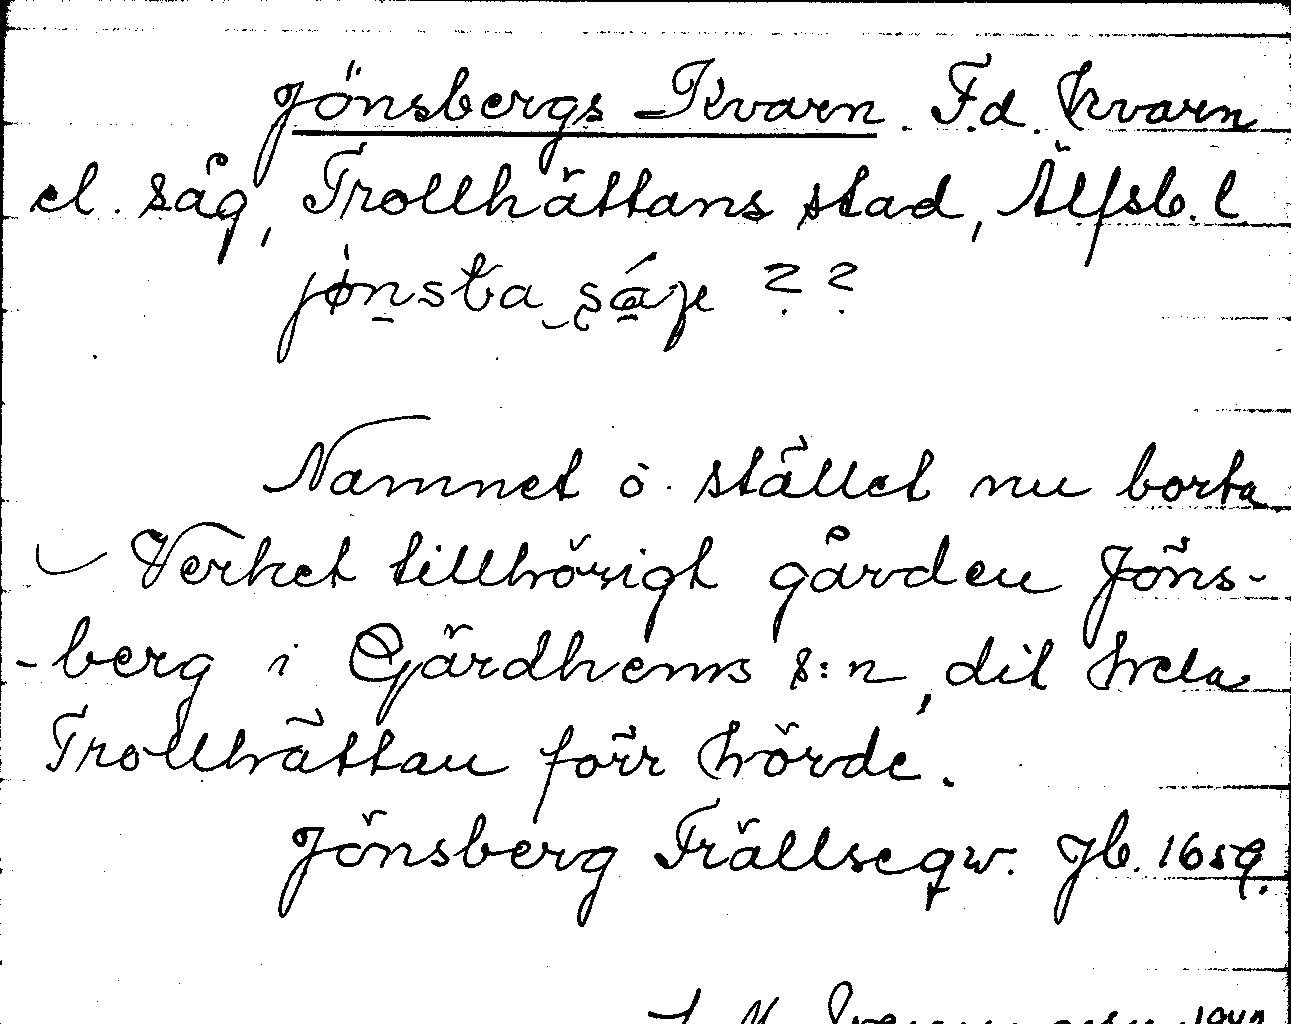 Jönsbergs Kvarn. F.d. Kvarn
el. såg, Trollhättans stad, Älfsb. l
jønsta ságe ? ?
Namnet o. stället nu borta
Verket tillhörigt gården Jöns-
-berg i Gärdhems s:n, dit hela
Trollhättan förr hörde.
Jönsberg Frällseqw. Jb. 1659.